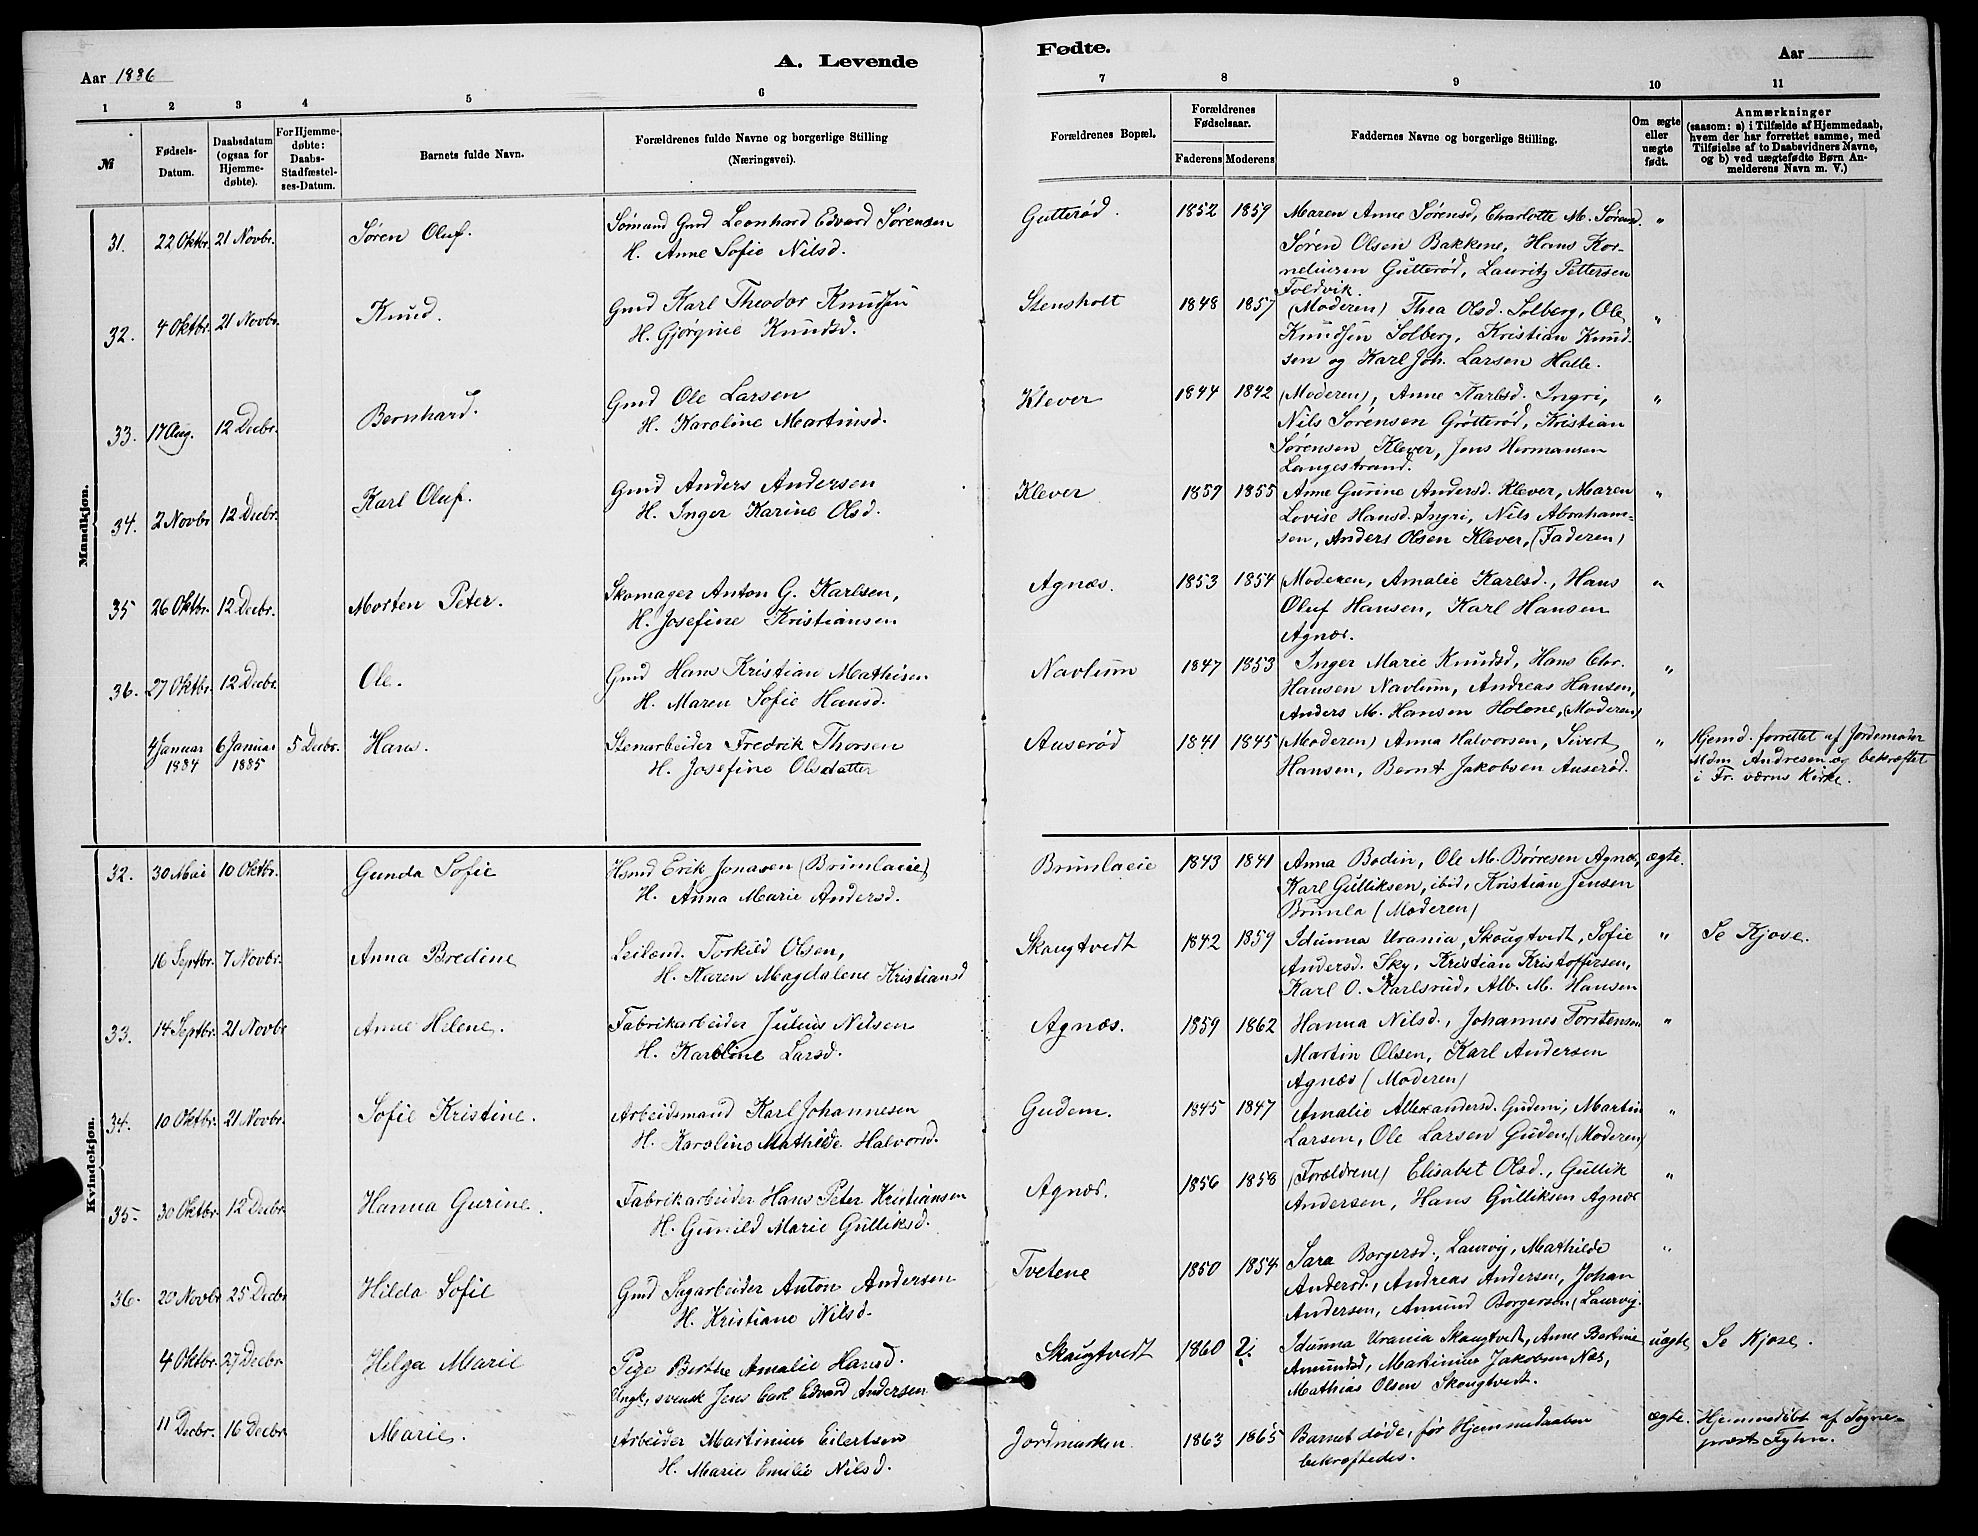 Aar 1886
A. Levende
Fødte.
Aar
1 2 3 4 5 6 7 8 9 10 11
№
Fødsels-
Datum.
Daabsdatum
(ogsaa for
Hjemme-
døbte).
For Hjemme-
døbte:
Daabs-
Stadfæstel-
ses-Datum.
Barnets fulde Navn.
Forældrenes fulde Navne og borgerlige Stilling
(Næringsvei).
Forældrenes Bopæl.
Forældrenes
Fødselsaar.
Faderens Moderens
Faddernes Navne og borgerlige Stilling.
Om ægte
eller
uægte
født.
Anmærkninger
(saasom: a) i Tilfælde af Hjemmedaab,
hvem der har forrettet samme, med
Tilføielse af to Daabsvidners Navne,
og b) ved uægtefødte Børn An-
melderens Navn m. V.)
Mandkjøn.
31. 22 Oktbr. 21 Novbr. Søren Oluf.
Sømand Gmd Leonhard Edvard Sørensen
H. Anne Sofie Nilsd.
Gutterød. 1852 1859
Maren Anne Sørensd, Charlotte M. Sørensd.
Søren Olsen Bakkene, Hans Kor-
neliusen Gutterød, Lauritz Pettersen
Foldvik.
"
32. 4 Oktbr. 21 Novbr. Knud.
Gmd Karl Theodor Knudsen
H. Gjørgine Knudsd.
Stensholt 1848 1857
(Moderen) Thea Olsd. Solberg, Ole
Knudsen Solberg, Kristian Knud-
sen og Karl Joh. Larsen Halle.
"
33. 17 Aug. 12 Decbr. Bernhard.
Gmd Ole Larsen
H. Karoline Martinsd.
Klever 1844 1842
(Moderen), Anne Karlsd. Ingri,
Nils Sørensen Grøtterød, Kristian
Sørensen Klever, Jens Hermansen
Langestrand.
"
34. 2 Novbr 12 Decbr. Karl Oluf.
Gmd Anders Andersen
H. Inger Karine Olsd.
Klever 1859 1855
Anne Gurine Andersd. Klever, Maren
Lovise Hansd. Ingri, Nils Abraham-
sen, Anders Olsen Klever, (Faderen)
"
35 26 Oktbr. 12 Decbr. Morten Peter.
Skomager Anton G. Karlsen,
H. Josefine Kristiansen
Agnæs. 1853 1854
(Moderen, Amalie Karlsd., Hans
Oluf Hansen, Karl Hansen
Agnæs.
"
36. 27 Oktbr. 12 Decbr. Ole.
Gmd Hans Kristian Mathisen
H. Maren Sofie Hansd.
Navlum 1847 1853
Inger Marie Knudsd, Hans Chr.
Hansen Navlum, Andreas Hansen,
Anders M. Hansen Holone, (Moderen)
"
4 Januar
1884
6 Januar
1885
5 Decbr. Hans.
Stenarbeider Fredrik Thorsen
H. Josefine Olsdatter
Auserød 1841 1845
(Moderen) Anna Halvorsen, Sivert
Hansen, Bernt Jakobsen Auserød.
"
Hjemd. forrettet af Jordemoder
Mdm Andresen og bekræftet
i Fr. værns Kirke.
Kvindekjøn.
32. 30 Mai 10 Oktbr. Gunda Sofie
Hsmd Erik Jonasen (Brunlaeie)
H. Anna Marie Andersd.
Brunlaeie 1843 1841
Anna Bodin, Ole M. Børresen Agnæs,
Karl Gulliksen, ibid, Kristian Jensen
Brunla (Moderen)
ægte.
16 Septbr. 7 Novbr. Anna Bredine
Leilænd. Torkild Olsen,
H. Maren Magdalene Kristiansd
Skaugtvedt 1842 1859
Idunna Urania, Skougtvedt, Sofie
Andersd. Sky, Kristian Kristoffersen,
Karl O. Karlsrud, Alb. M. Hansen
"
Se Kjose.
33. 14 Septbr. 21 Novbr Anne Helene.
Fabrikarbeider Julius Nilsen
H. Karoline Larsd.
Agnæs. 1859 1862
Hanna Nilsd., Johannes Torstensen
Martin Olsen, Karl Andersen
Agnæs (Moderen)
"
34. 10 Oktbr. 21 Novbr. Sofie Kristine.
Arbeidsmand Karl Johannesen
H. Karoline Mathilde Halvorsd.
Gudem. 1845 1847
Amalie Allexandersd. Gudem, Martin
Larsen, Ole Larsen Gudem (Moderen)
"
35. 30 Oktbr. 12 Decbr. Hanna Gurine.
Fabrikarbeider Hans Peter Kristiansen
H. Gunild Marie Gulliksd.
Agnæs. 1856 1858
(Forældrene) Elisabet Olsd., Gullik
Andersen, Hans Gulliksen Agnæs
"
36. 20 Novbr 25 Decbr Hilda Sofie
Gmd Sagarbeider Anton Andersen
H. Kristiane Nilsd.
Tvetene 1850 1854
Sara Borgersd., Laurvig, Mathilde
Andersd., Andreas Andersen, Johan
Andersen, Amund Borgersen (Laurvig.
"
4 Oktbr. 27 Decbr. Helga Marie
Pige Berthe Amalie Hansd.
Ungk, svensk Jens Carl Edvard Andersen
Skaugtvedt 1860 2.
Idunna Urania Skaugtvedt, Anne Bertine
Amundsd, Martinius Jakobsen Næs,
Mathias Olsen Skougtvedt.
uægte
Se Kjose.
11 Decbr. 16 Decbr. Marie.
Arbeider Martinius Eilertsen
H. Marie Emilie Nilsd.
Jordmarken. 1863 1865
Barnet døde, før Hjemmedaaben
bekræftedes.
ægte.
Hjemmedøbt af Sogne-
præst Fyhn.